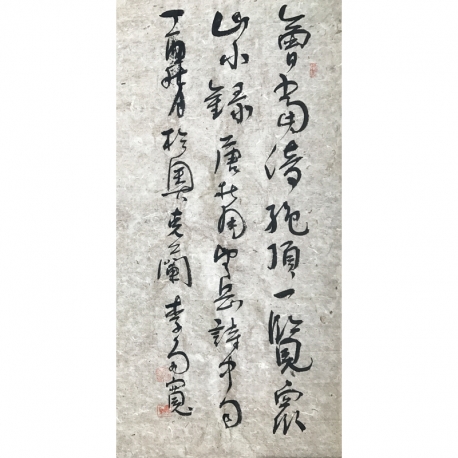 會當凌絕頂一覽衆
山小錄唐杜甫望岳詩中句
丁酉秋月於奧克蘭李寬